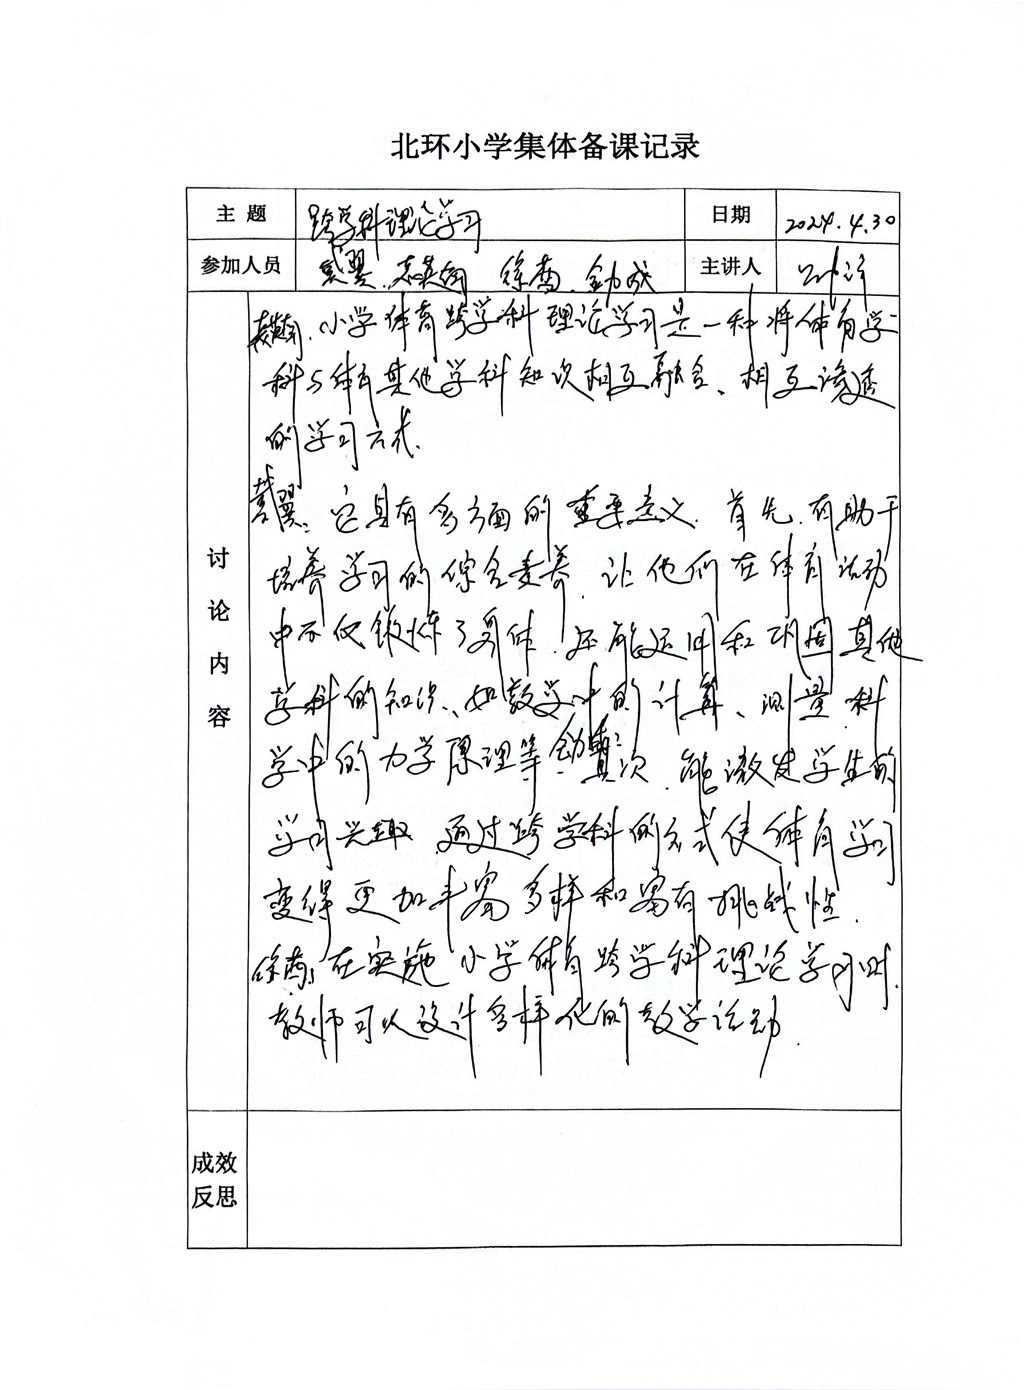 北环小学集体备课记录
主 题 跨学科理论学习 日期 2024.4.30
参加人员 徐茜 主讲人
小学体育跨学科理论学习是一种将体育学
科与体育其他学科知识相互融合、相互渗透
的学习方式.
它具有多方面的重要意义.首先.有助于
培养学习的综合素养.让他们在体育活动
中不仅锻炼了身体.还能运用和巩固其他
学科的知识、如数学中的计算、测量.科
学中的力学原理等 其次.能激发学生的
学习兴趣.通过跨学科的方式使体育学习
变得更加丰富多样和富有挑战性.
徐茜:在实施小学体育跨学科理论学习时.
教师可以设计多样化的教学活动.
讨论内容
成效
反思